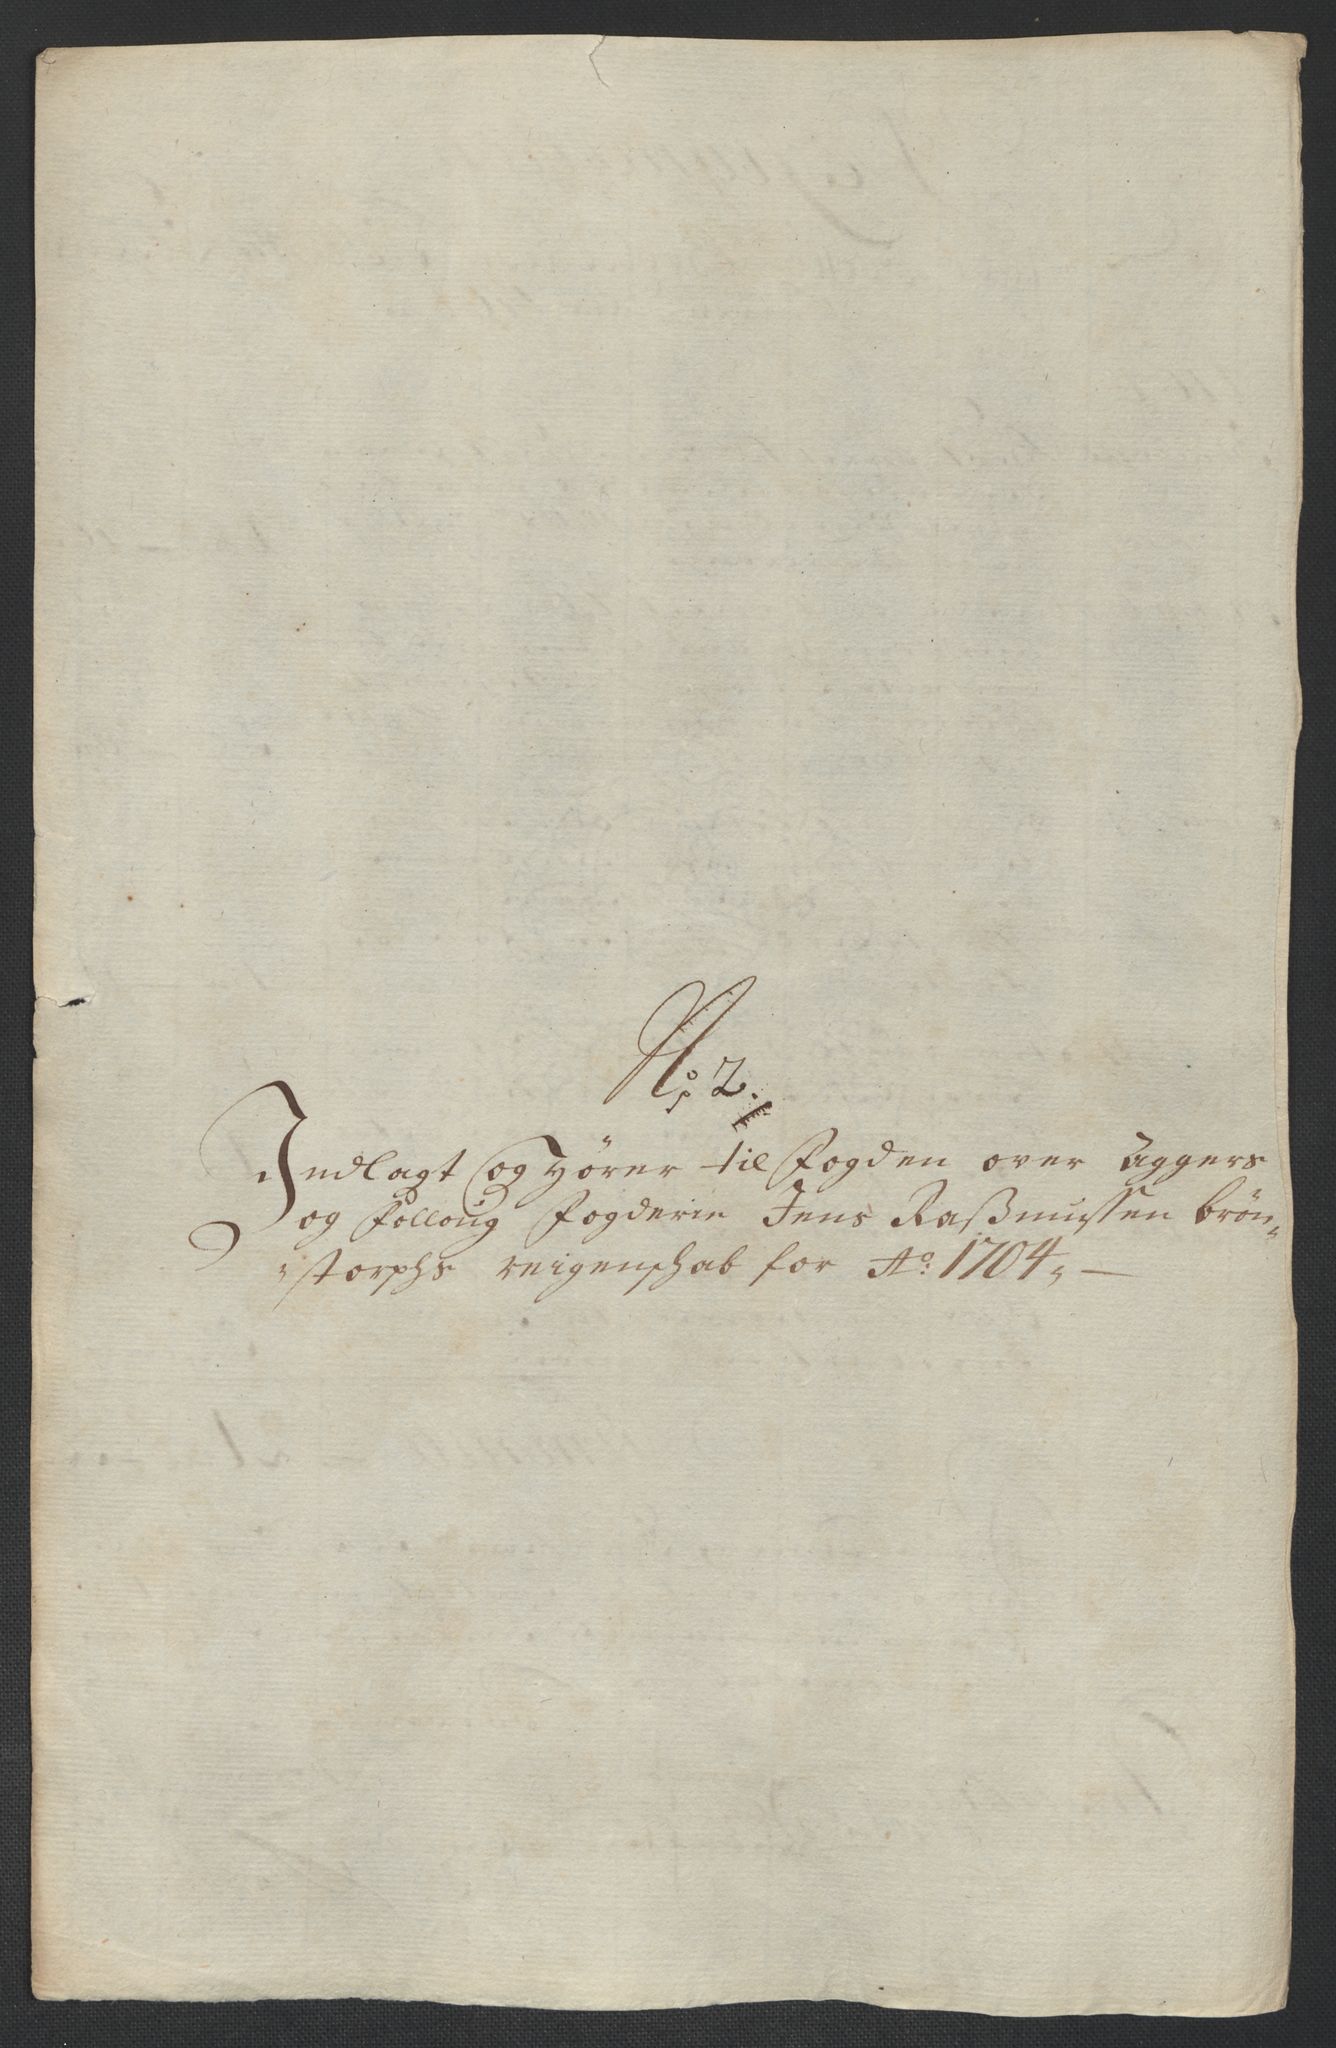 No: 2.
Indlagt og Hører til Fogden over Aggers
og Folloug Fogderie Jens Raßmussen brön„
„storphs reigenschab for Ao: 1704„ —